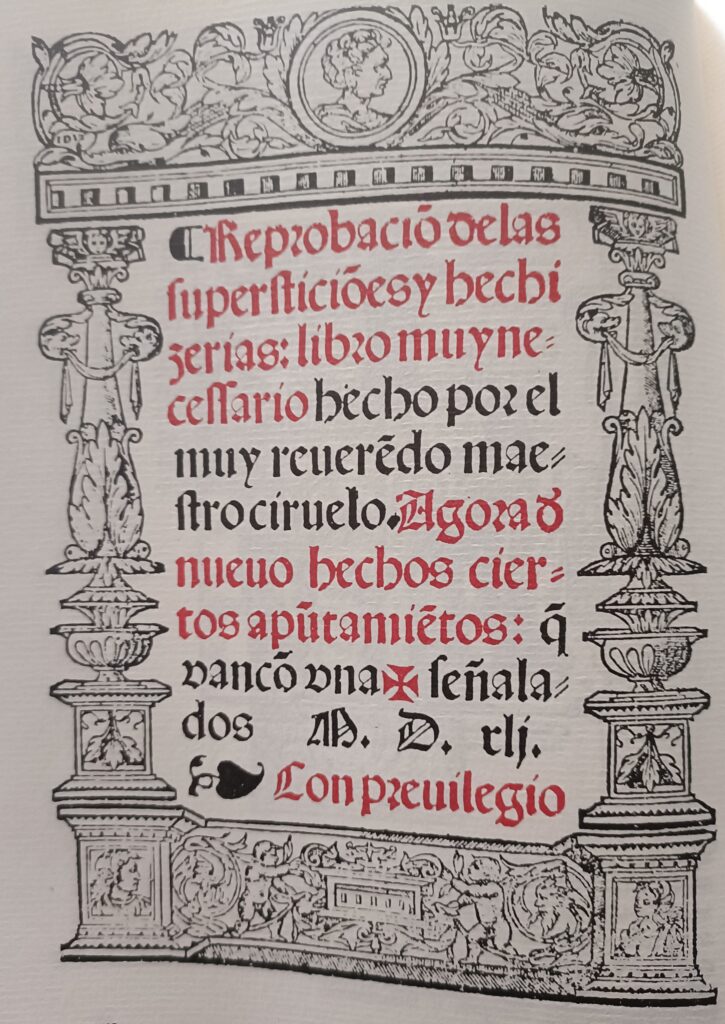 Reprobaciõ delas
supersticiõesy hechi
zerias: libro muyne-
cessario hecho por el
muy reuerẽdo mae-
stro ciruelo. Agora đ
nueuo hechos cier-
tos apũtamiẽtos: q̃
vancõ vna ✠ señala-
dos M. D. xlj.
Con preuilegio